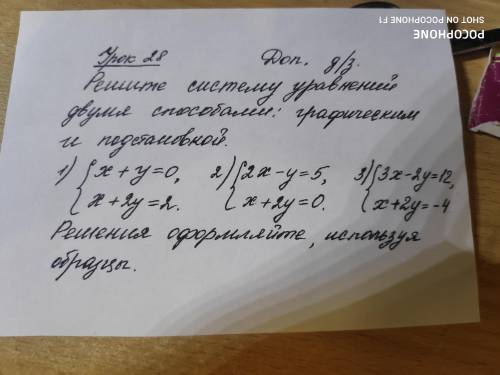 POCOPHONE
SHOT ON POCOPHONE F1
Урок 28 Доп. д/з.
Решите систему уравнений
двумя способами: графическим
и подстановкой.
1) { x + y = 0, 2) { 2x - y = 5, 3) { 3x - 2y = 12,
x + 2y = 2. x + 2y = 0. x + 2y = -4
Решения оформляйте, используя
образцы.